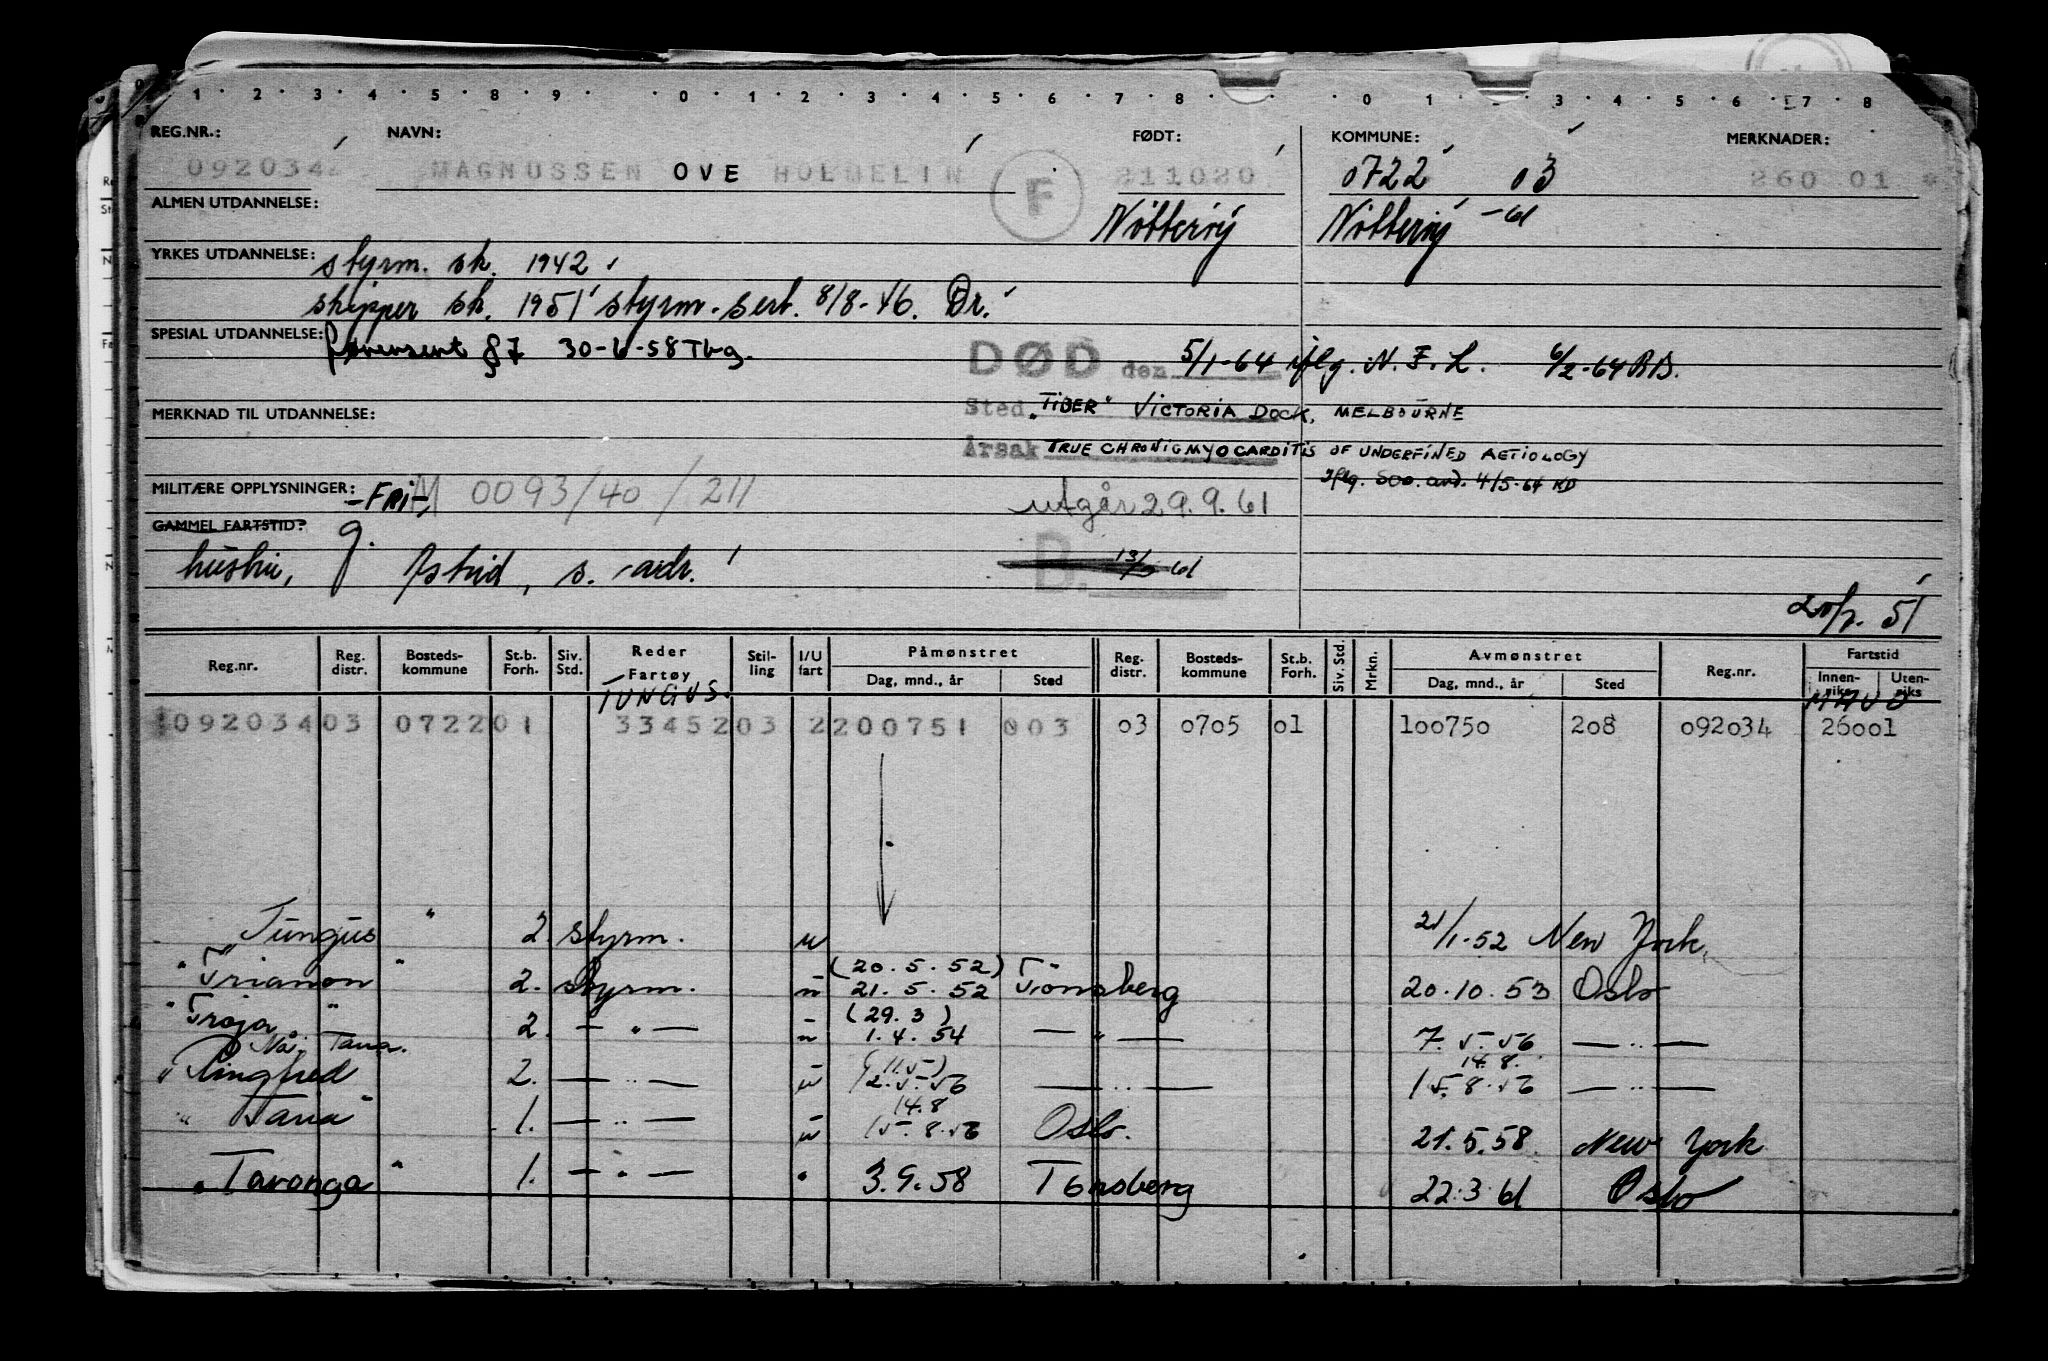 1 · 2 · 3 · 4 · 5 · 8 · 9 · 0 · 1 · 2 · 3 · 4 · 5 · 6 · 7 · 8 · 0 · 1 · 3 · 4 · 5 · 6 · 7 · 8
REG.NR.: NAVN: FØDT: KOMMUNE: MERKNADER:
092034 MAGNUSSEN OVE HOLMELIN F 211020 0722 03 260 01 *
ALMEN UTDANNELSE: Nötteröy Nötteröy -61
YRKES UTDANNELSE: styrm. sk. 1942
skipper sk. 1951 styrm. sert. 8/8-46. Dr.
SPESIAL UTDANNELSE: §7 30-6-58 Tbg.
DØD den 5/1-64 iflg. N.F.L. 6/2-64 RB.
MERKNAD TIL UTDANNELSE: Sted „TIBER" VICTORIA DOCK, MELBOURNE
Årsak TRUE CHRONIC MYOCARDITIS OF UNDERFINED AETIOLOGY
MILITÆRE OPPLYSNINGER: -FRI- M 0093/40/211 Iflg. 4/5-64 KD
utgår 29.9.61
GAMMEL FARTSTID? g.
hustru, Astrid, s. adr. B. 61
51
Reg.nr. Reg. distr. Bosteds- kommune St.b. Forh. Siv. Std. Reder Fartøy Stil- ling I/U fart Påmønstret Dag, mnd., år Sted Reg. distr. Bosteds- kommune St.b. Forh. Siv. Std. Mrkn. Avmønstret Dag, mnd., år Sted Reg.nr. Fartstid Innen- riks Uten- riks
TUNGUS. MAUD
092034 03 0722 01 33452 03 2 200751 003 03 0705 01 100750 208 092034 26001
Tungus " 2. styrm. u 21/1-52 New York.
(20.5.52)
" Trianon " 2. styrm. u 21.5.52 Tönsberg 20.10.53 Oslo
(29.3)
" Troja " 2. — " — u 1.4.54 — " — 7.5.56 — " —
Nå: Tana.
(11.5) 14.8.
" Ringfred 2. — " — u 12.5.56 — " — 15.8.56 — " —
14.8
" Taria " 1. — " — u 15.8.56 Oslo. 21.5.58 New York
" Taronga " 1. — " — " 3.9.58 Tönsberg 22.3.61 Oslo